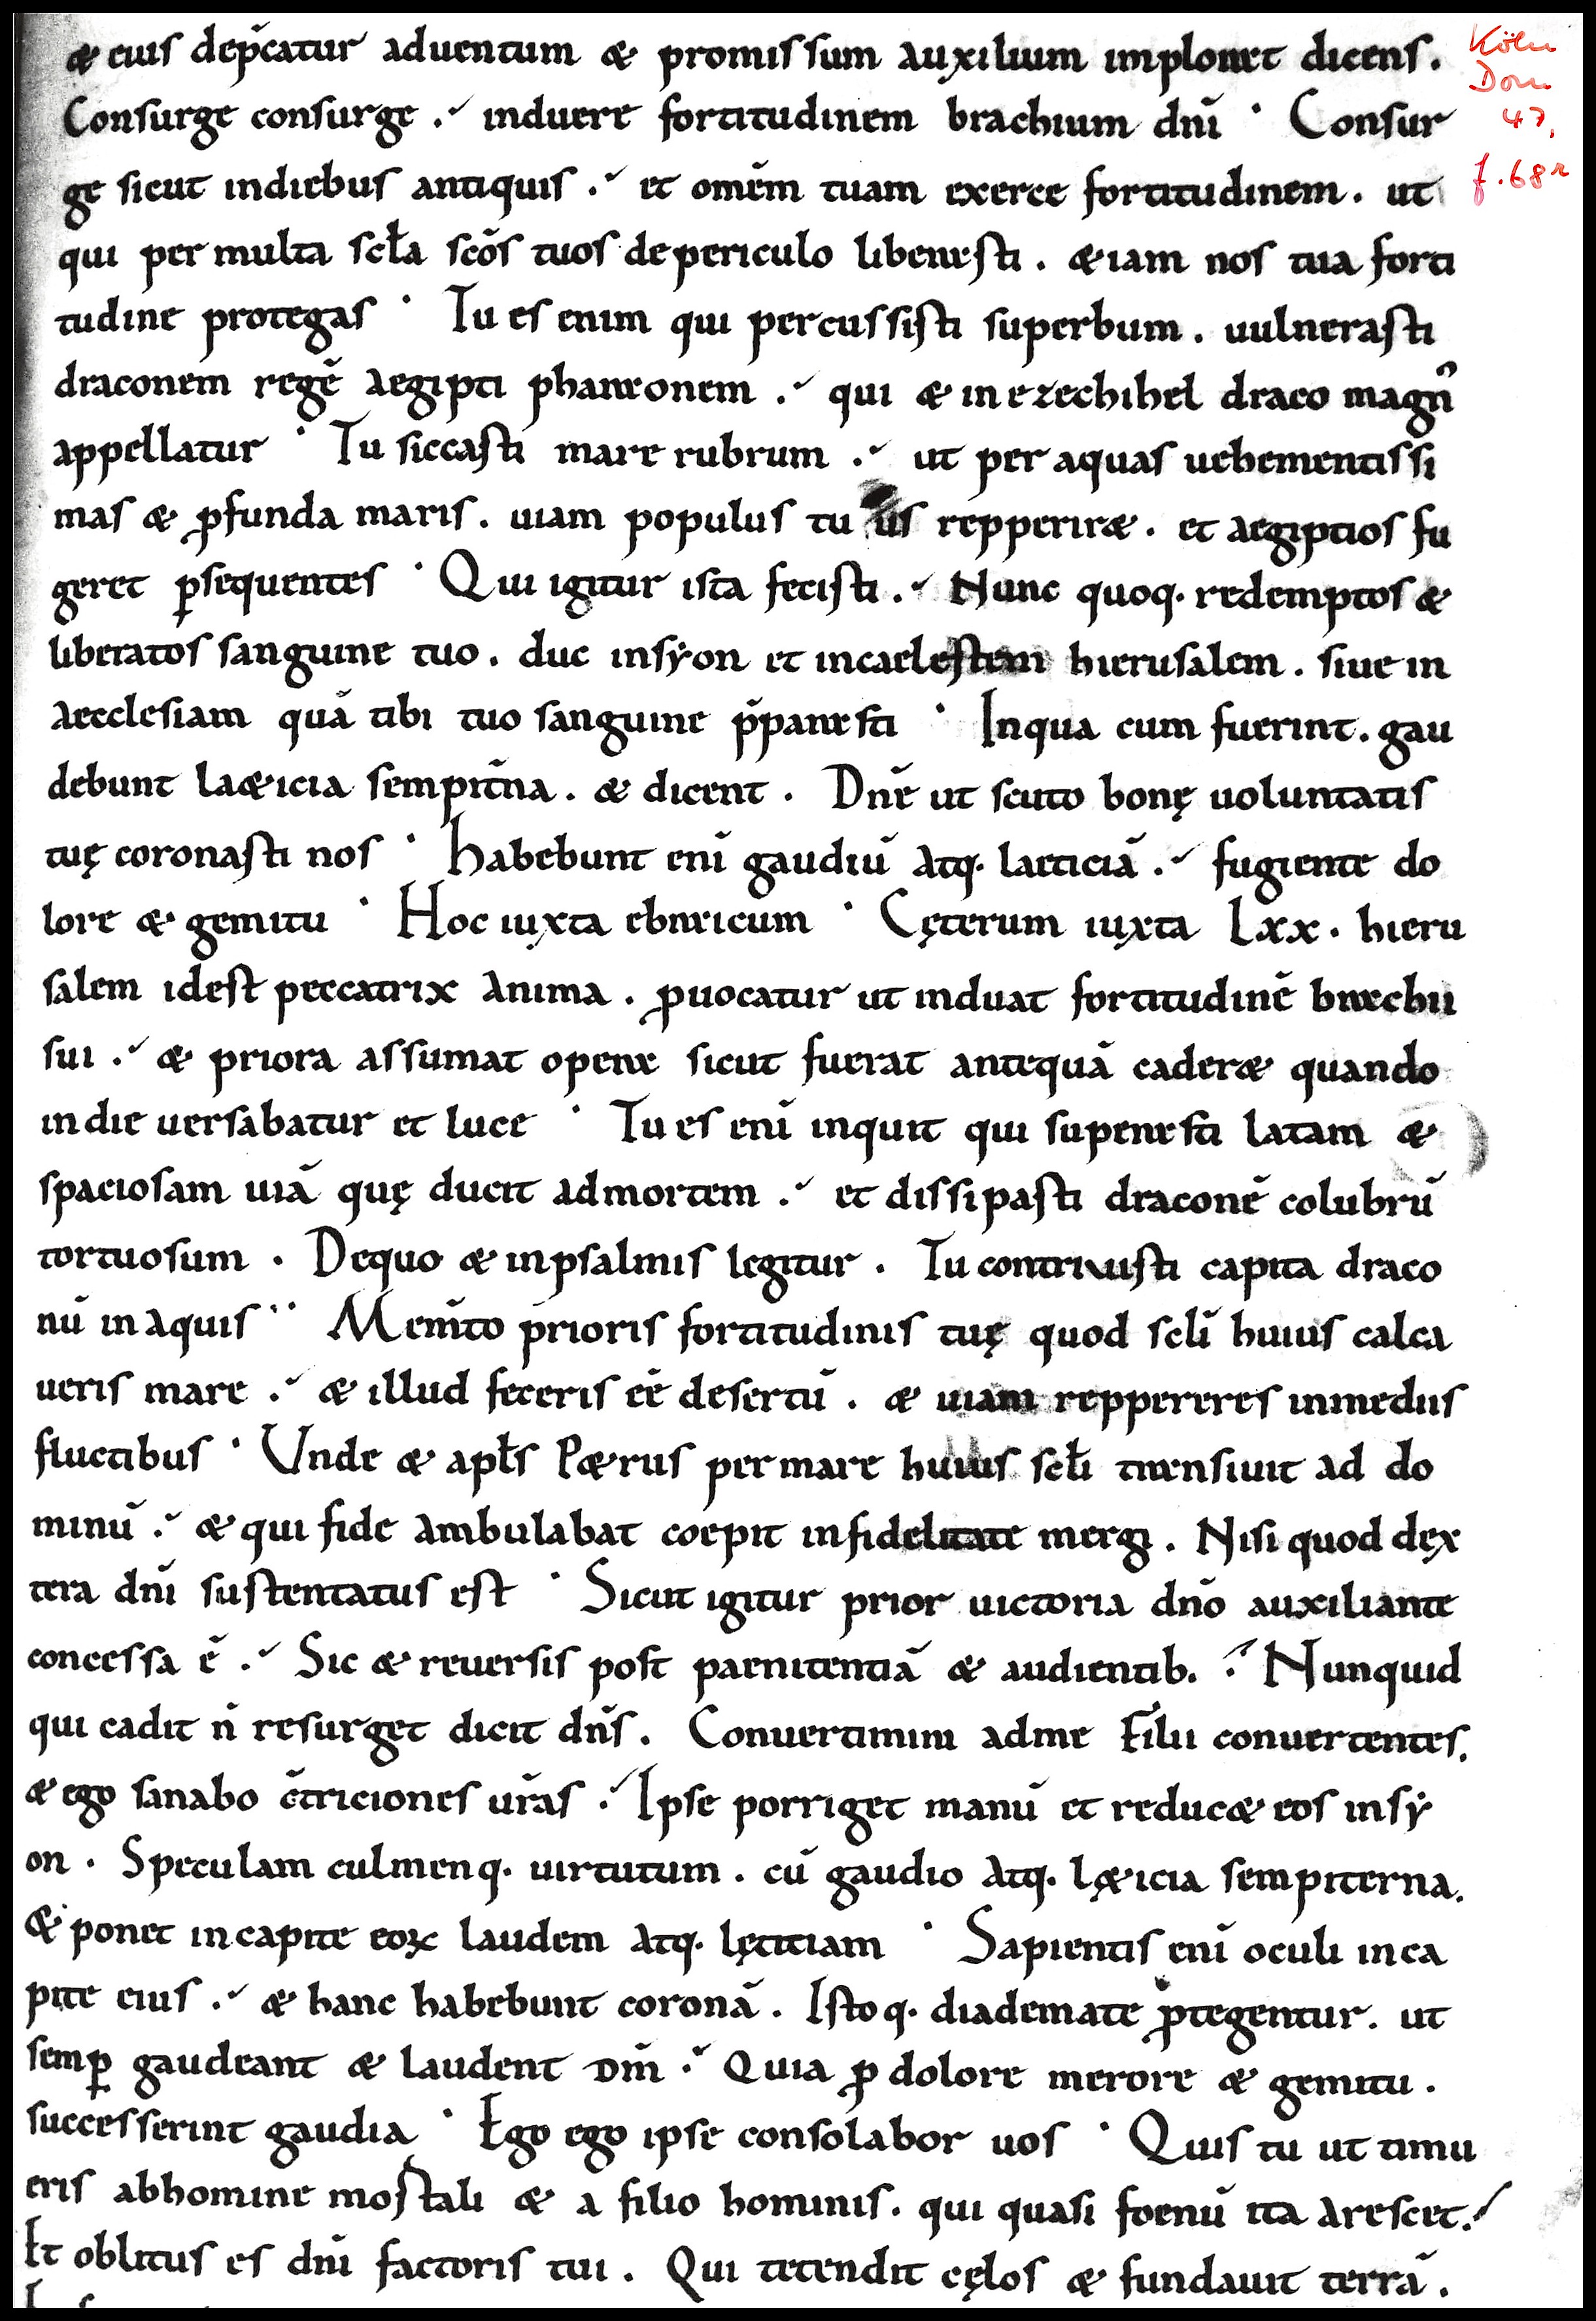 & eius dep̄catur aduentum & promissum auxilium imploret dicens.
Köln
Dom
47,
f. 68r
Consurge consurge . induere fortitudinem brachium dn̄i · Consur
ge sicut indiebus antiquis . et omē̄m tuam exerce fortitudinem. ut
qui per multa scła scōs tuos de periculo liberasti. &iam nos tua forti
tudine protegas · Tu es enim qui percussisti superbum. uulnerasti
draconem regē aegipti pharaonem . qui & in ezechihel draco magn̄
appellatur · Tu siccasti mare rubrum . ut per aquas uehementissi
mas & ꝓfunda maris. uiam populus tuus repperir&. et aegiptios fu
geret ꝑsequentes · Qui igitur ista fecisti . Nunc quoq· redemptos &
liberatos sanguine tuo. duc insẏon et incaelestem hierusalem. siue in
aecclesiam quā tibi tuo sanguine p̄parasti · Inqua cum fuerint. gau
debunt la&icia sempit̄na. & dicent. Dn̄e ut scuto bonę uoluntatis
tuę coronasti nos · habebunt enī gaudiū atq· laeticiā . fugiente do
lore & gemitu · Hoc iuxta ebraicum · Cęterum iuxta Lxx. hieru
salem idest peccatrix anima. ꝓuocatur ut induat fortitudinē brachii
sui . & priora assumat opera sicut fuerat antequā cader& quando
indie uersabatur et luce · Tu es enī inquit qui superasti latam &
spaciosam uiā quę ducit admortem . et dissipasti draconē colubrū
tortuosum . Dequo & inpsalmis legitur . Tu contriuisti capita draco
nū in aquis ·· Mem̄to prioris fortitudinis tuę quod sclī huius calca
ueris mare . & illud feceris eē desertū . & uiam reppereres inmediis
fluctibus · Unde & apłs P&rus per mare huius scłi transiuit ad do
minū . & qui fide ambulabat coepit infidelitate mergi. Nisi quod dex
tera dn̄i sustentatus est · Sicut igitur prior uictoria dn̄o auxiliante
concessa ē . Sic & reuersis post paenitentiā & audientib. Nunquid
qui cadit n̄ resurget dicit dn̄s. Conuertimini adme filii conuertentes.
& ego sanabo c̄triciones ur̄as . Ipse porriget manū et reduc& eos insẏ
on . Speculam culmenq· uirtutum. cū gaudio atq· l&icia sempiterna.
& ponet incapite eoꝝ laudem atq· lętitiam · Sapientis enī oculi inca
pite eius . & hanc habebunt coronā. Isto q· diademate ꝓtegentur. ut
semꝑ gaudeant & laudent dm̄ . Quia ꝓ dolore merore & gemitu .
successerint gaudia · Ego ego ipse consolabor uos · Quis tu ut timu
eris abhomine mortali & a filio hominis. qui quasi foenū ita arescet.
Et oblitus es dn̄i factoris tui . Qui tetendit cęlos & fundauit terrā .